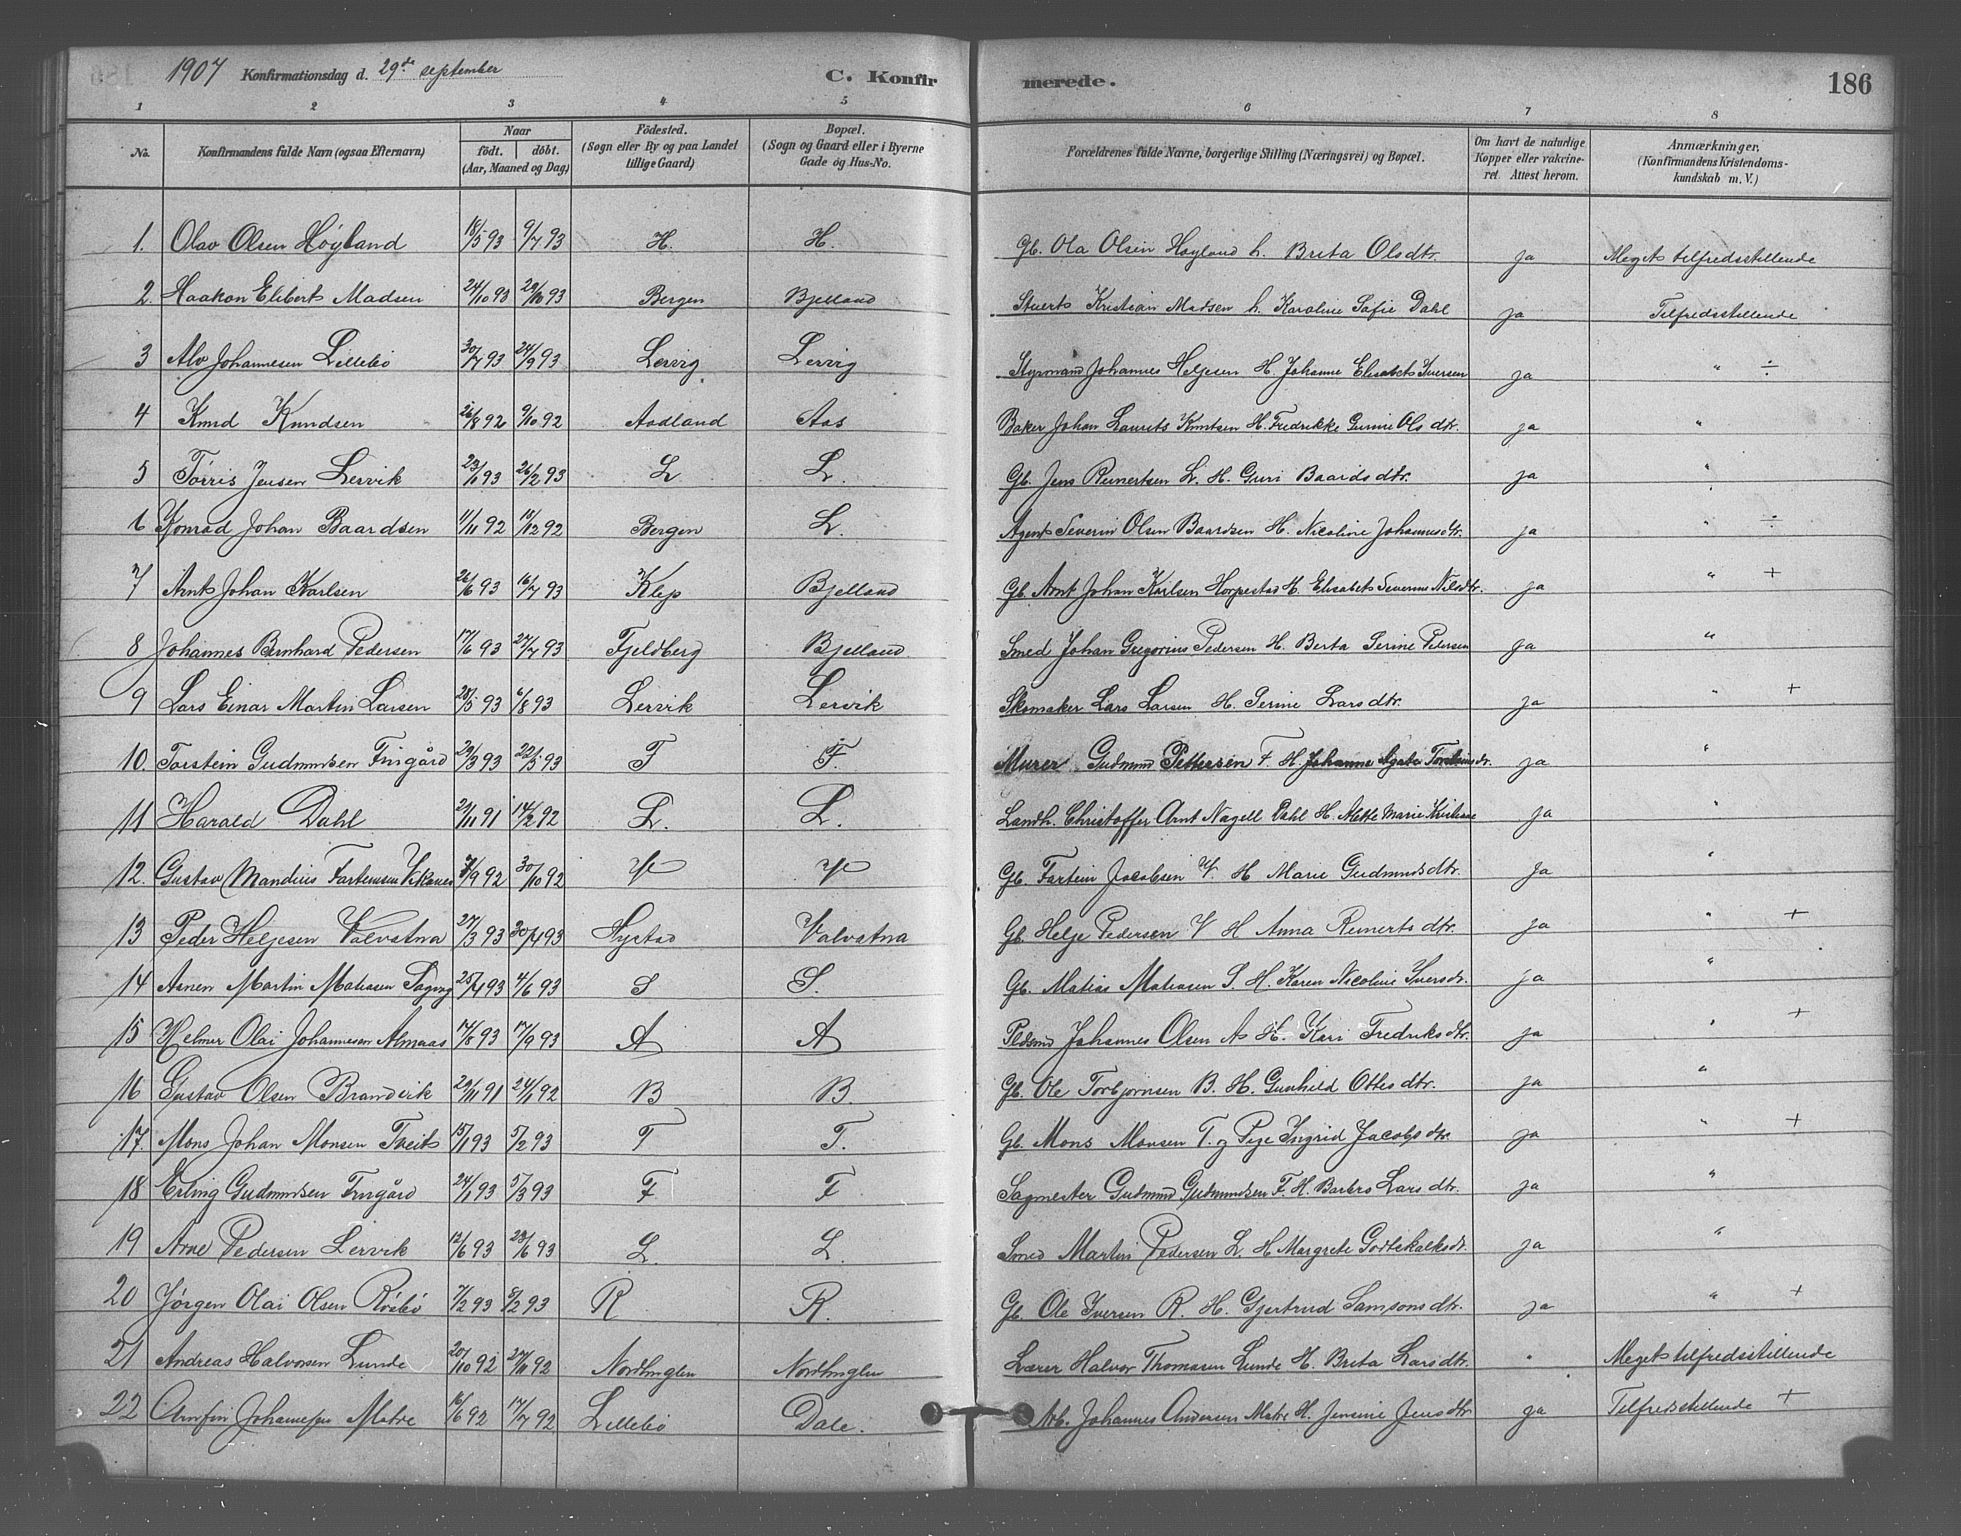 1907 Konfirmationsdag d. 29de september C. Konfirmerede. 186
1 2 3 4 5 6 7 8
No. Konfirmandens fulde Navn (ogsaa Efternavn) Naar født. døbt. (Aar, Maaned og Dag) Födested. (Sogn eller By og paa Landet tillige Gaard) Bopæl. (Sogn og Gaard eller i Byerne Gade og Hus-No. Forældrenes fulde Navne, borgerlige Stilling (Næringsvei) og Bopæl. Om havt de naturlige Kopper eller vakcineret. Attest herom. Anmærkninger. (Konfirmandens Kristendomskundskab m. V.)
1. Olav Olsen Høyland 18/5 93 9/7 93 H. H. Gb. Ola Olsen Høyland h. Brita Olsdtr. ja Meget tilfredsstillende
2. Haakon Elibert Madsen 24/10 93 Bergen Bjelland Stuert Kristian Madsen h. Karoline Sofie Dahl ja Tilfredsstillende
3 Alv Johannesen Lillebø 30/7 93 24/9 93 Lervig Lervig Styrmand Johannes Helgesen H. Johanne Elisabet Iversen ja " ÷
4 Knud Knudsen 26/8 92 9/10 92 Aadland Aas Baker Johan Laurits Knutsen H. Fredrikke Gurine Olsdtr. ja "
5 Tørris Jensen Lervik 23/1 93 26/2 93 L L. Gb. Jens Reinertsen L. H. Guri Baardsdtr. ja "
6 Konrad Johan Baardsen 11/11 92 18/12 92 Bergen L. Agent Severin Olsen Baardsen H. Nicoline Johannesdtr. ja " ÷
7 Arnt Johan Karlsen 26/6 93 16/7 93 Klep Bjelland Gb. Arnt Johan Karlsen Horpestad H. Elisabet Severine Nilsdtr. ja " +
8 Johannes Bernhard Pedersen 17/6 93 27/7 93 Fjeldberg Bjelland Smed Johan Gregorius Pedersen H. Berta Serine Petersen ja "
9 Lars Einar Martin Larsen 28/5 93 6/8 93 Lervik Lervik Skomaker Lars Larsen H. Serine Larsdtr. ja " +
10. Torstein Gudmundsen Tingård 29/3 93 22/5 93 T F. Murer Gudmund Pettersen F. H. Johanne Agate Torsteinsdr. ja "
11 Harald Dahl 27/11 91 14/2 92 L. L. Landh. Christoffer Arnt Nagell Dahl H. Mette Marie Kristiane ja "
12. Gustav Mandius Farteinsen Vikanes 7/9 92 30/10 92 V V Gb. Fartein Jacobsen V. H Marie Gudmundsdtr. ja "
13 Peder Helgesen Valvatna 27/3 93 30/4 93 Nystad Valvatna Gb. Helge Pedersen V H Anna Reinertsdtr. ja " +
14 Martin Matiasen Sagvåg 25/4 93 4/6 93 S S. Gb. Matias Matiasen S. H. Karen Nicoline Iversdr. ja "
15 Helmer Olai Johannesen Almaas 14/8 93 17/9 93 A A Johannes Olsen A H. Kari Fredriksdtr. ja " +
16 Gustav Olsen Brandvik 29/11 91 24/1 92 B B. Gb. Ole Torbjørnsen B. H. Gunhild Ottesdtr. ja "
17. Mons Johan Monsen Tveit 15/1 93 5/2 93 T T. Gb. Mons Monsen T. og Pige Ingrid Jacobsdtr. ja " +
18 Erling Gudmundsen Tingård 24/1 93 5/3 93 F F Sagmester Gudmund Gudmundsen F. H. Barbro Larsdtr. ja "
19 Arne Pedersen Lervik 12/6 93 23/6 93 L. L. Smed Martin Pedersen L. H Margrete Godtskalksdr. ja "
20 Jørgen Olai Olsen Røsbø 7/2 93 8/2 93 R R. Gb. Ole Iversen R. H. Gjertrud Samsonsdtr. ja " +
21 Andreas Halvorsen Lunde 20/10 92 27/11 92 Nordhuglen Nordhuglen Lærer Halvor Thomasen Lunde H. Brita Larsdtr. " Meget tilfredsstillende
22 Arnfin Johannesen Matre 16/6 92 17/7 92 Lillebø Dale. Arb. Johannes Andersen Matre H. Jensine Jensdtr ja Tilfredsstillende +